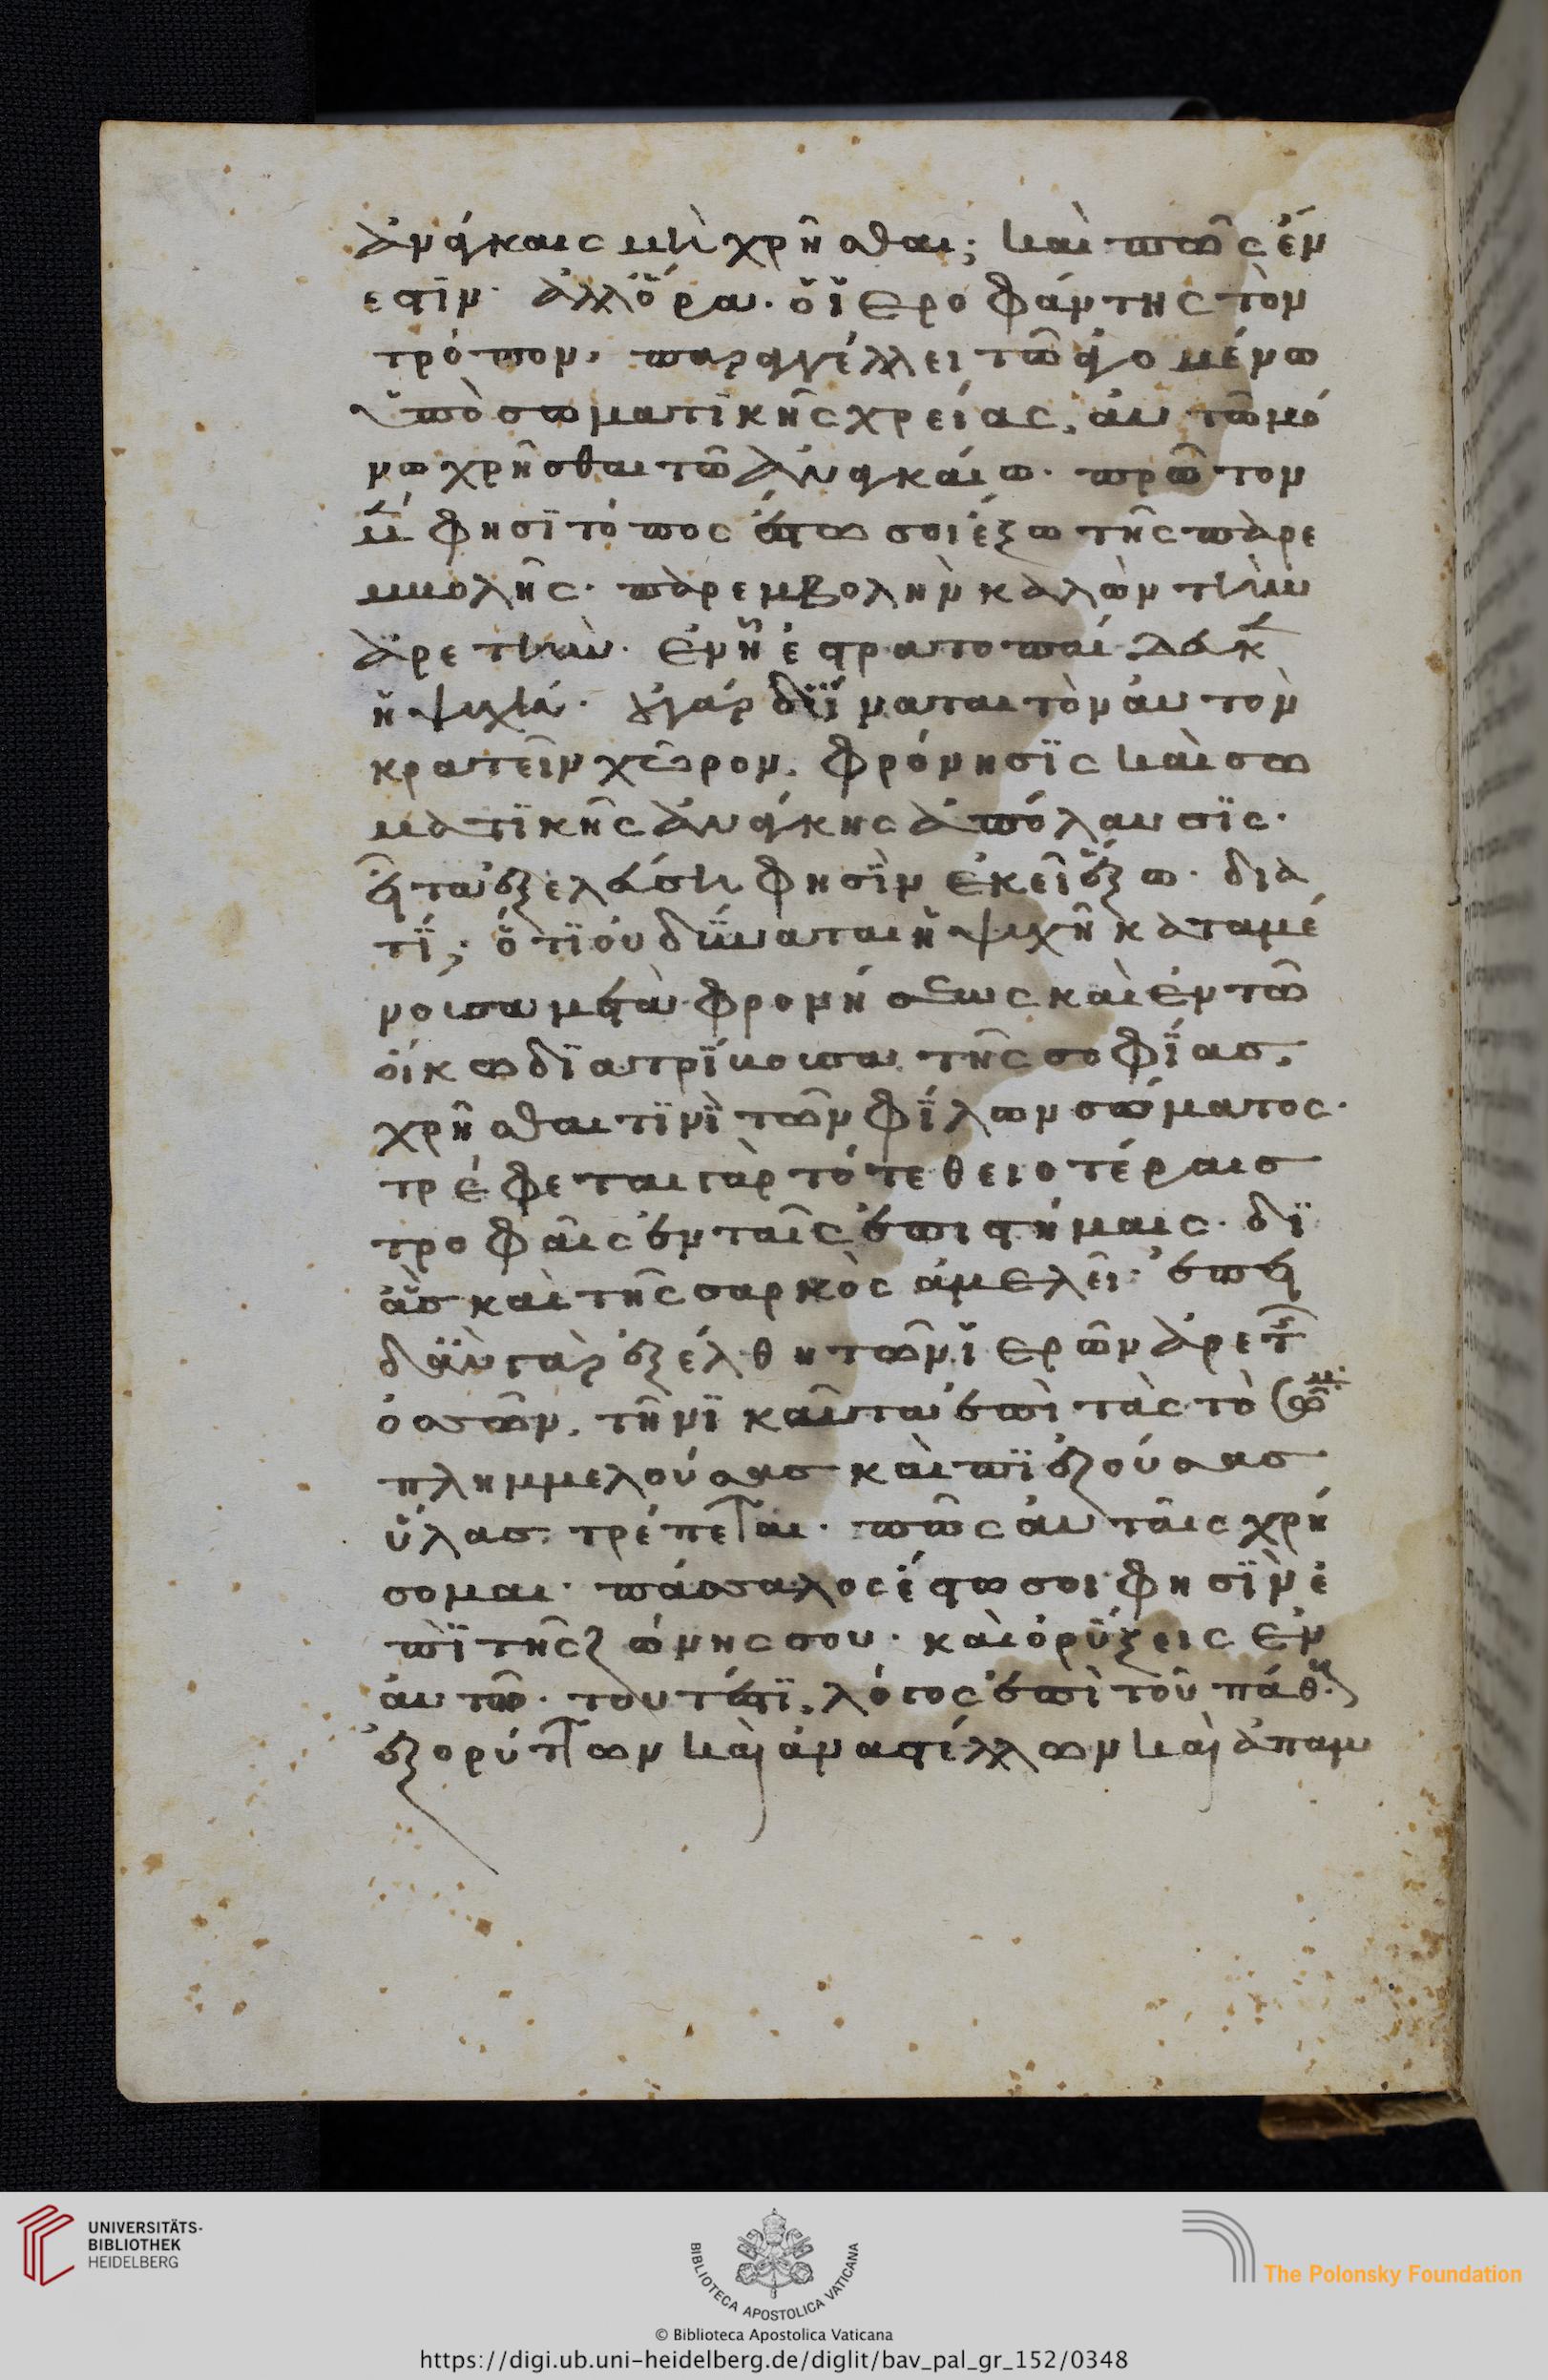 ἀνάγκαις μὴ χρῆσθαι; καὶ πῶς ἔν
εστιν· ἀλλ' ὅρα· ὁ ἱεροφάντης τὸν
τρόπον, παραγγέλλει τῶ ἀγομένω
ὑπὸ σωματικῆς χρείας, αυτῶ μό
νω χρῆσθαι τῶ ἀναγκαίω· πρῶτον
μ(ὲν) φησὶ τόπος ἔστω σοι ἔξω τῆς παρε
μβολῆς· παρεμβολὴν καλῶν τὴν
ἀρετὴν· ἐν ἧ ἐστρατοπαίδευκ(εν)
ἡ ψυχή· οὐ γὰρ δύναται τὸν αὐτὸν
κρατεῖν χῶρον, φρόνησις καὶ σω
ματικῆς ἀνάγκης ἀπόλαυσις·
εἶτα ἐξελεύση φησὶν ἐκεῖ ἔξω· δια
τί; ὅτι οὐ δύναται ἡ ψυχὴ καταμέ
νουσα μετὰ φρονήσεως καὶ ἐν τῶ
οἴκω διατρίβουσα τῆς σοφίας,
χρῆσθαι τινὶ τῶν φίλων σώματος·
τρέφεται γὰρ τότε θειοτέραις
τροφαῖς ἐν ταῖς ἐπιστήμαις· δι
ἃς καὶ τῆς σαρκὸς ἀμελεῖ· ἐπει
δὰν γὰρ ἐξέλθη τῶν ἱερῶν ἀρετ(ῆς)
οσων, τηνι καῦτα ἐπὶ τὰς τὸ σῶμ(α)
πλημμελούσας καὶ πιεζούσας
ὕλας τρέπεται· πῶς αὐταῖς χρή
σομαι· πάσσαλος ἔστω σοι φησὶν ἐ
πὶ τῆς ζώνης σου· καὶ ὀρύξεις ἐν
αὐτῶ· τουτέστι, λόγος ἐπὶ τοῦ πάθους
ἐξορύττων καὶ ἀναστέλλων καὶ ἀπαμ
UNIVERSITÄTS-
BIBLIOTHEK
HEIDELBERG
BIBLIOTECA APOSTOLICA VATICANA
The Polonsky Foundation
© Biblioteca Apostolica Vaticana
https://digi.ub.uni-heidelberg.de/diglit/bav_pal_gr_152/0348